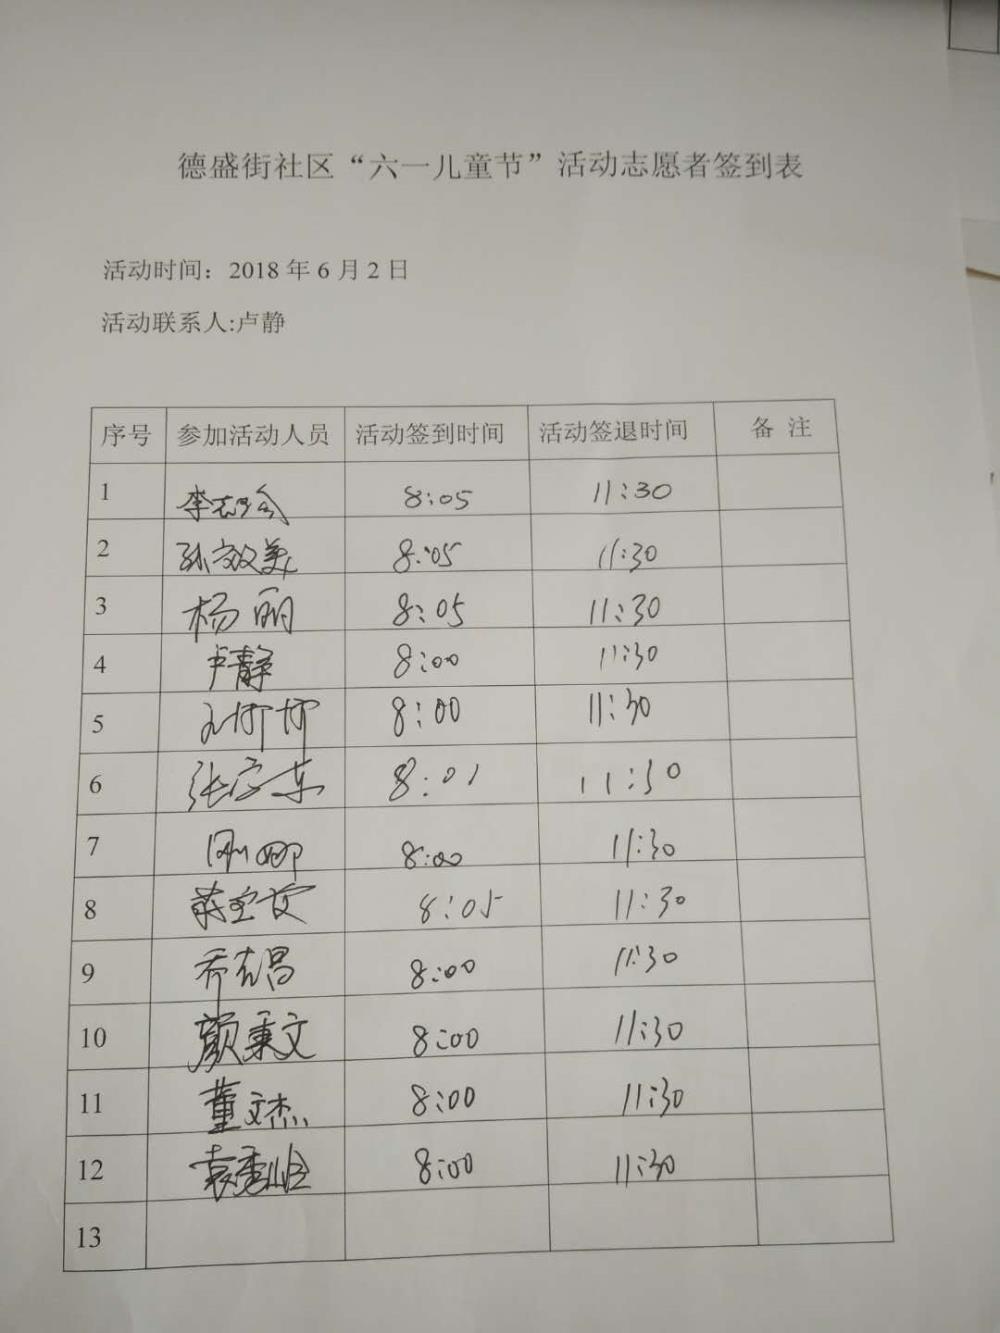 德盛街社区“六一儿童节”活动志愿者签到表
活动时间：2018 年 6 月 2 日
活动联系人:卢静
序号 参加活动人员 活动签到时间 活动签退时间 备 注
1 8:05 11:30
2 孙效美 8:05 11:30
3 杨丽 8:05 11:30
4 卢静 8:00 11:30
5 8:00 11:30
6 8:01 11:30
7 8:00 11:30
8 8:05 11:30
9 乔克昌 8:00 11:30
10 颜秉文 8:00 11:30
11 董文杰 8:00 11:30
12 8:00 11:30
13